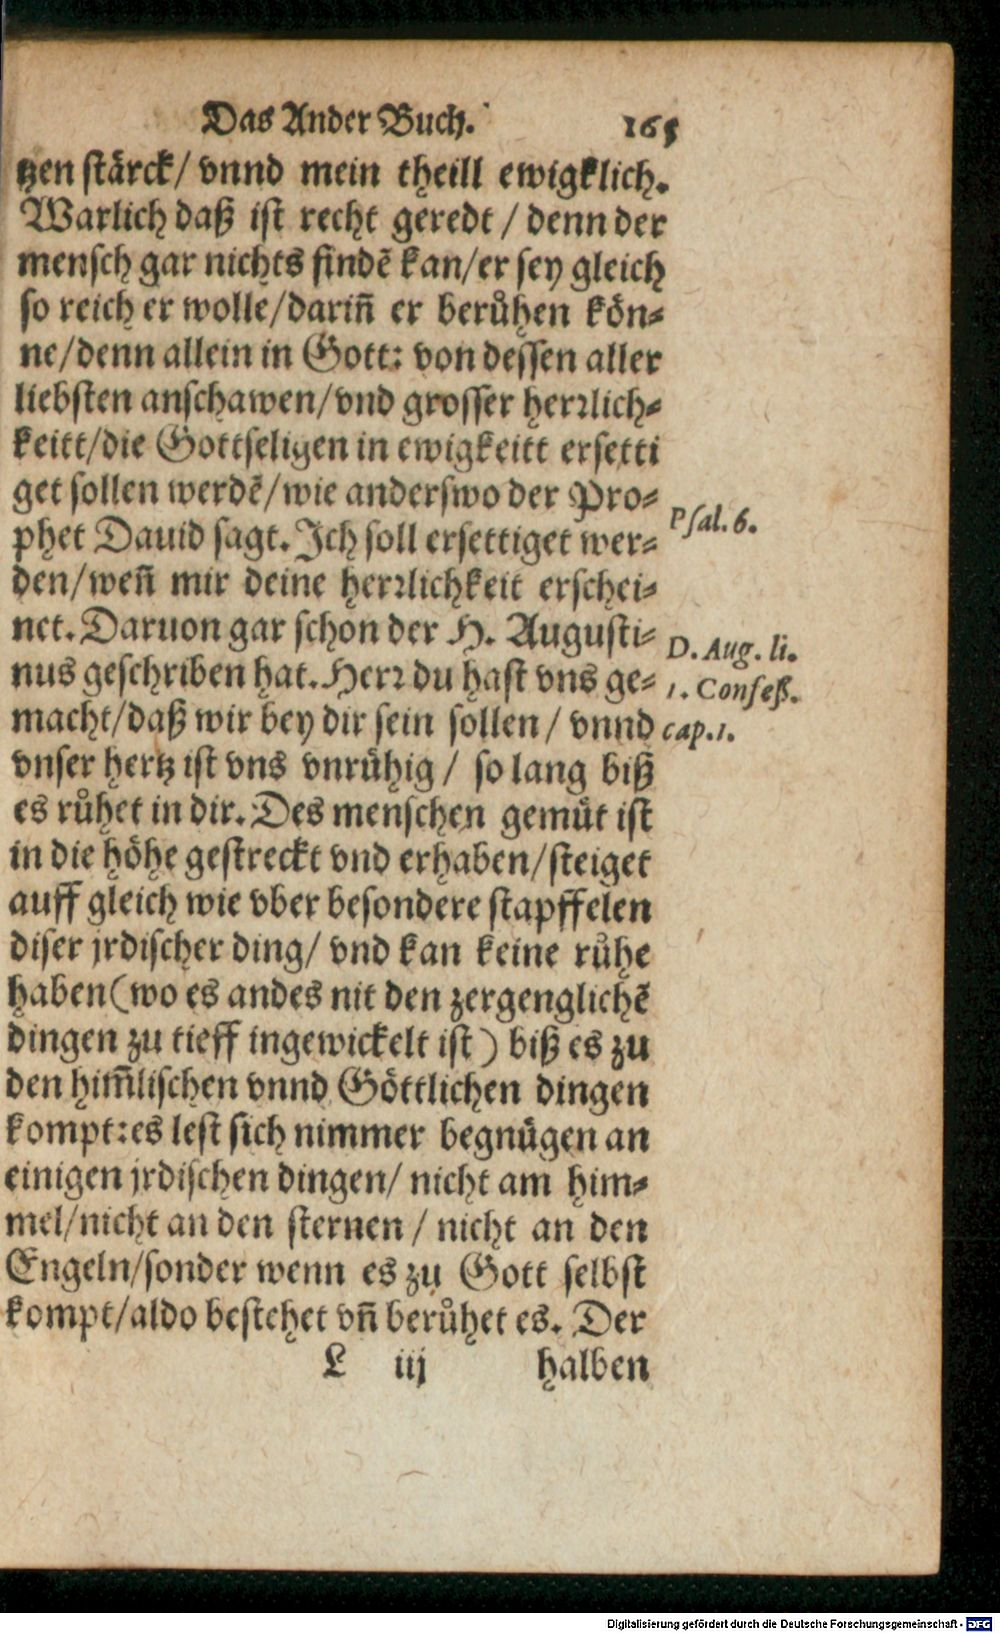 Das Ander Buch. 165
tzen stärck/ vnnd mein theill ewigklich.
Warlich daß ist recht geredt / denn der
mensch gar nichts findē kan/er sey gleich
so reich er wolle/dariñ er berůhen kön-
ne/denn allein in Gott: von dessen aller
liebsten anschawen/vnd grosser herrlich-
keitt/die Gottseligen in ewigkeitt ersetti
get sollen werdē/wie anderswo der Pro-
phet Dauid sagt. Ich soll ersettiget wer-
den/weñ mir deine herrlichkeit erschei-
net. Daruon gar schon der H. Augusti-
nus geschriben hat. Herr du hast vns ge-
macht/daß wir bey dir sein sollen / vnnd
vnser hertz ist vns vnrühig / so lang biß
es růhet in dir. Des menschen gemüt ist
in die höhe gestreckt vnd erhaben/steiget
auff gleich wie vber besondere stapffelen
diser jrdischer ding/ vnd kan keine růhe
haben (wo es andes nit den zergenglichē
dingen zu tieff ingewickelt ist) biß es zu
den him̃lischen vnnd Göttlichen dingen
kompt: es lest sich nimmer begnügen an
einigen jrdischen dingen/ nicht am him-
mel/nicht an den sternen / nicht an den
Engeln/sonder wenn es zu Gott selbst
kompt/aldo bestehet vñ berůhet es. Der
L iij halben
Psal. 6.
D. Aug. li.
1. Confeß.
cap. 1.
Digitalisierung gefördert durch die Deutsche Forschungsgemeinschaft - DFG